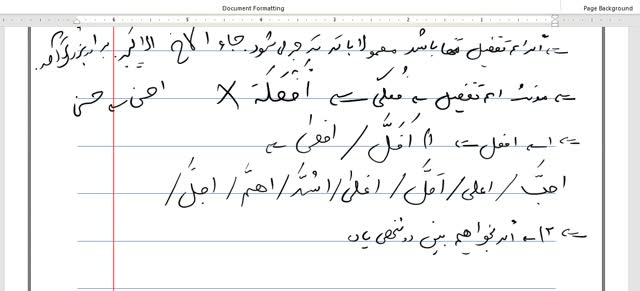 Document Formatting
Page Background
6 5 4 3 2 1
← اگر اسم تفضیل تنها باشد معمولا با تر ترجمه می‌شود. جاء الاخ الاکبر: برادر بزرگتر آمد
← مونث اسم تفضیل ← فُعلَی ← أفعَلَة X احسن ← حسنی
← اسم افعل ← ۱) أفَلّ / افعی ←
احبّ / اعلی / اقلّ / اغلی / اشدّ / اهمّ / اجلّ /
← ۲) ← اگر بخواهیم بین دو شخص یا